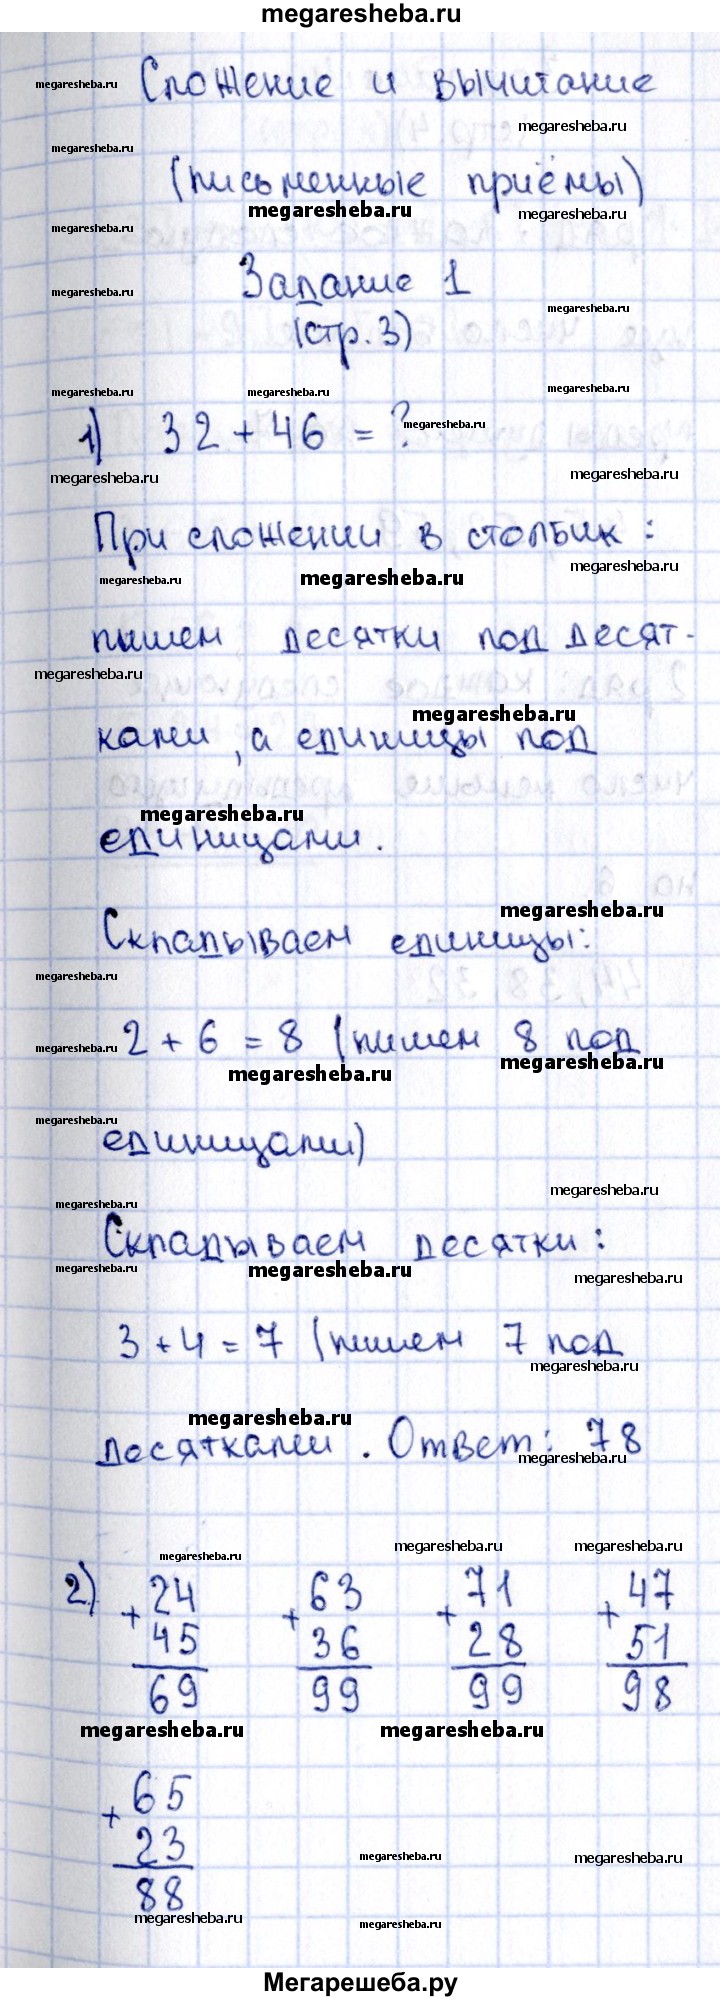 megaresheba.ru
Сложение и вычитание
(письменные приёмы)
Задание 1
(стр. 3)
1) 32 + 46 = ?
При сложении в столбик:
пишем десятки под десят-
ками, а единицы под
единицами.
Складываем единицы:
2 + 6 = 8 (пишем 8 под
единицами)
Складываем десятки:
3 + 4 = 7 (пишем 7 под
десятками. Ответ: 78
2) +24 +63 +71 +47
45 36 28 51
69 99 99 98
+65
23
88
Мегарешеба.ру